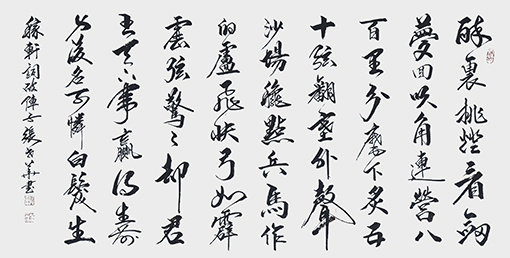 醉裏挑燈看劍
夢回吹角連營八
百里分麾下炙五
十弦翻塞外聲
沙場龝點兵馬作
的盧飛快弓如霹
靂弦驚了却君
王天下事贏得生前
身後名可憐白髮生
稼軒詞破陣子張華書